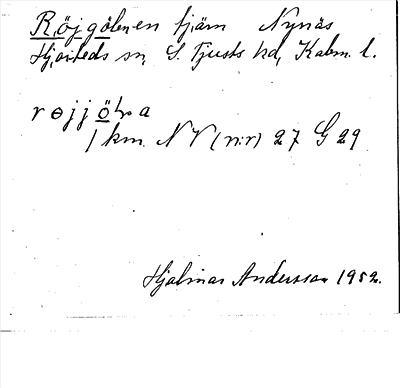 Röjgölen, en tjärn Nynäs
Hjorteds sn, S. Tjusts hd, Kalm. l.
1 km. NV (n:r) 27 G 29
Hjalmar Andersson 1952.